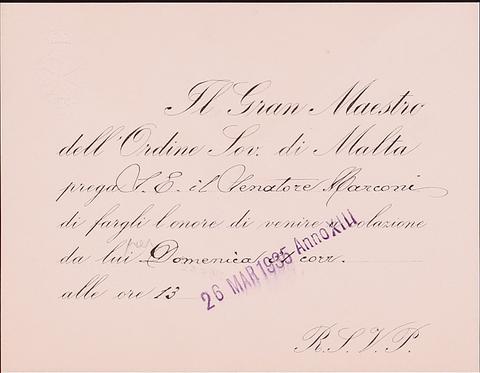 Il Gran Maestro
dell'Ordine Sov. di Malta
prega S. E. il Senatore Marconi
di fargli l'onore di venire a colazione
da lui Domenica corr.
alle ore 13
26 MAR 1935 Anno XIII
R. S. V. P.